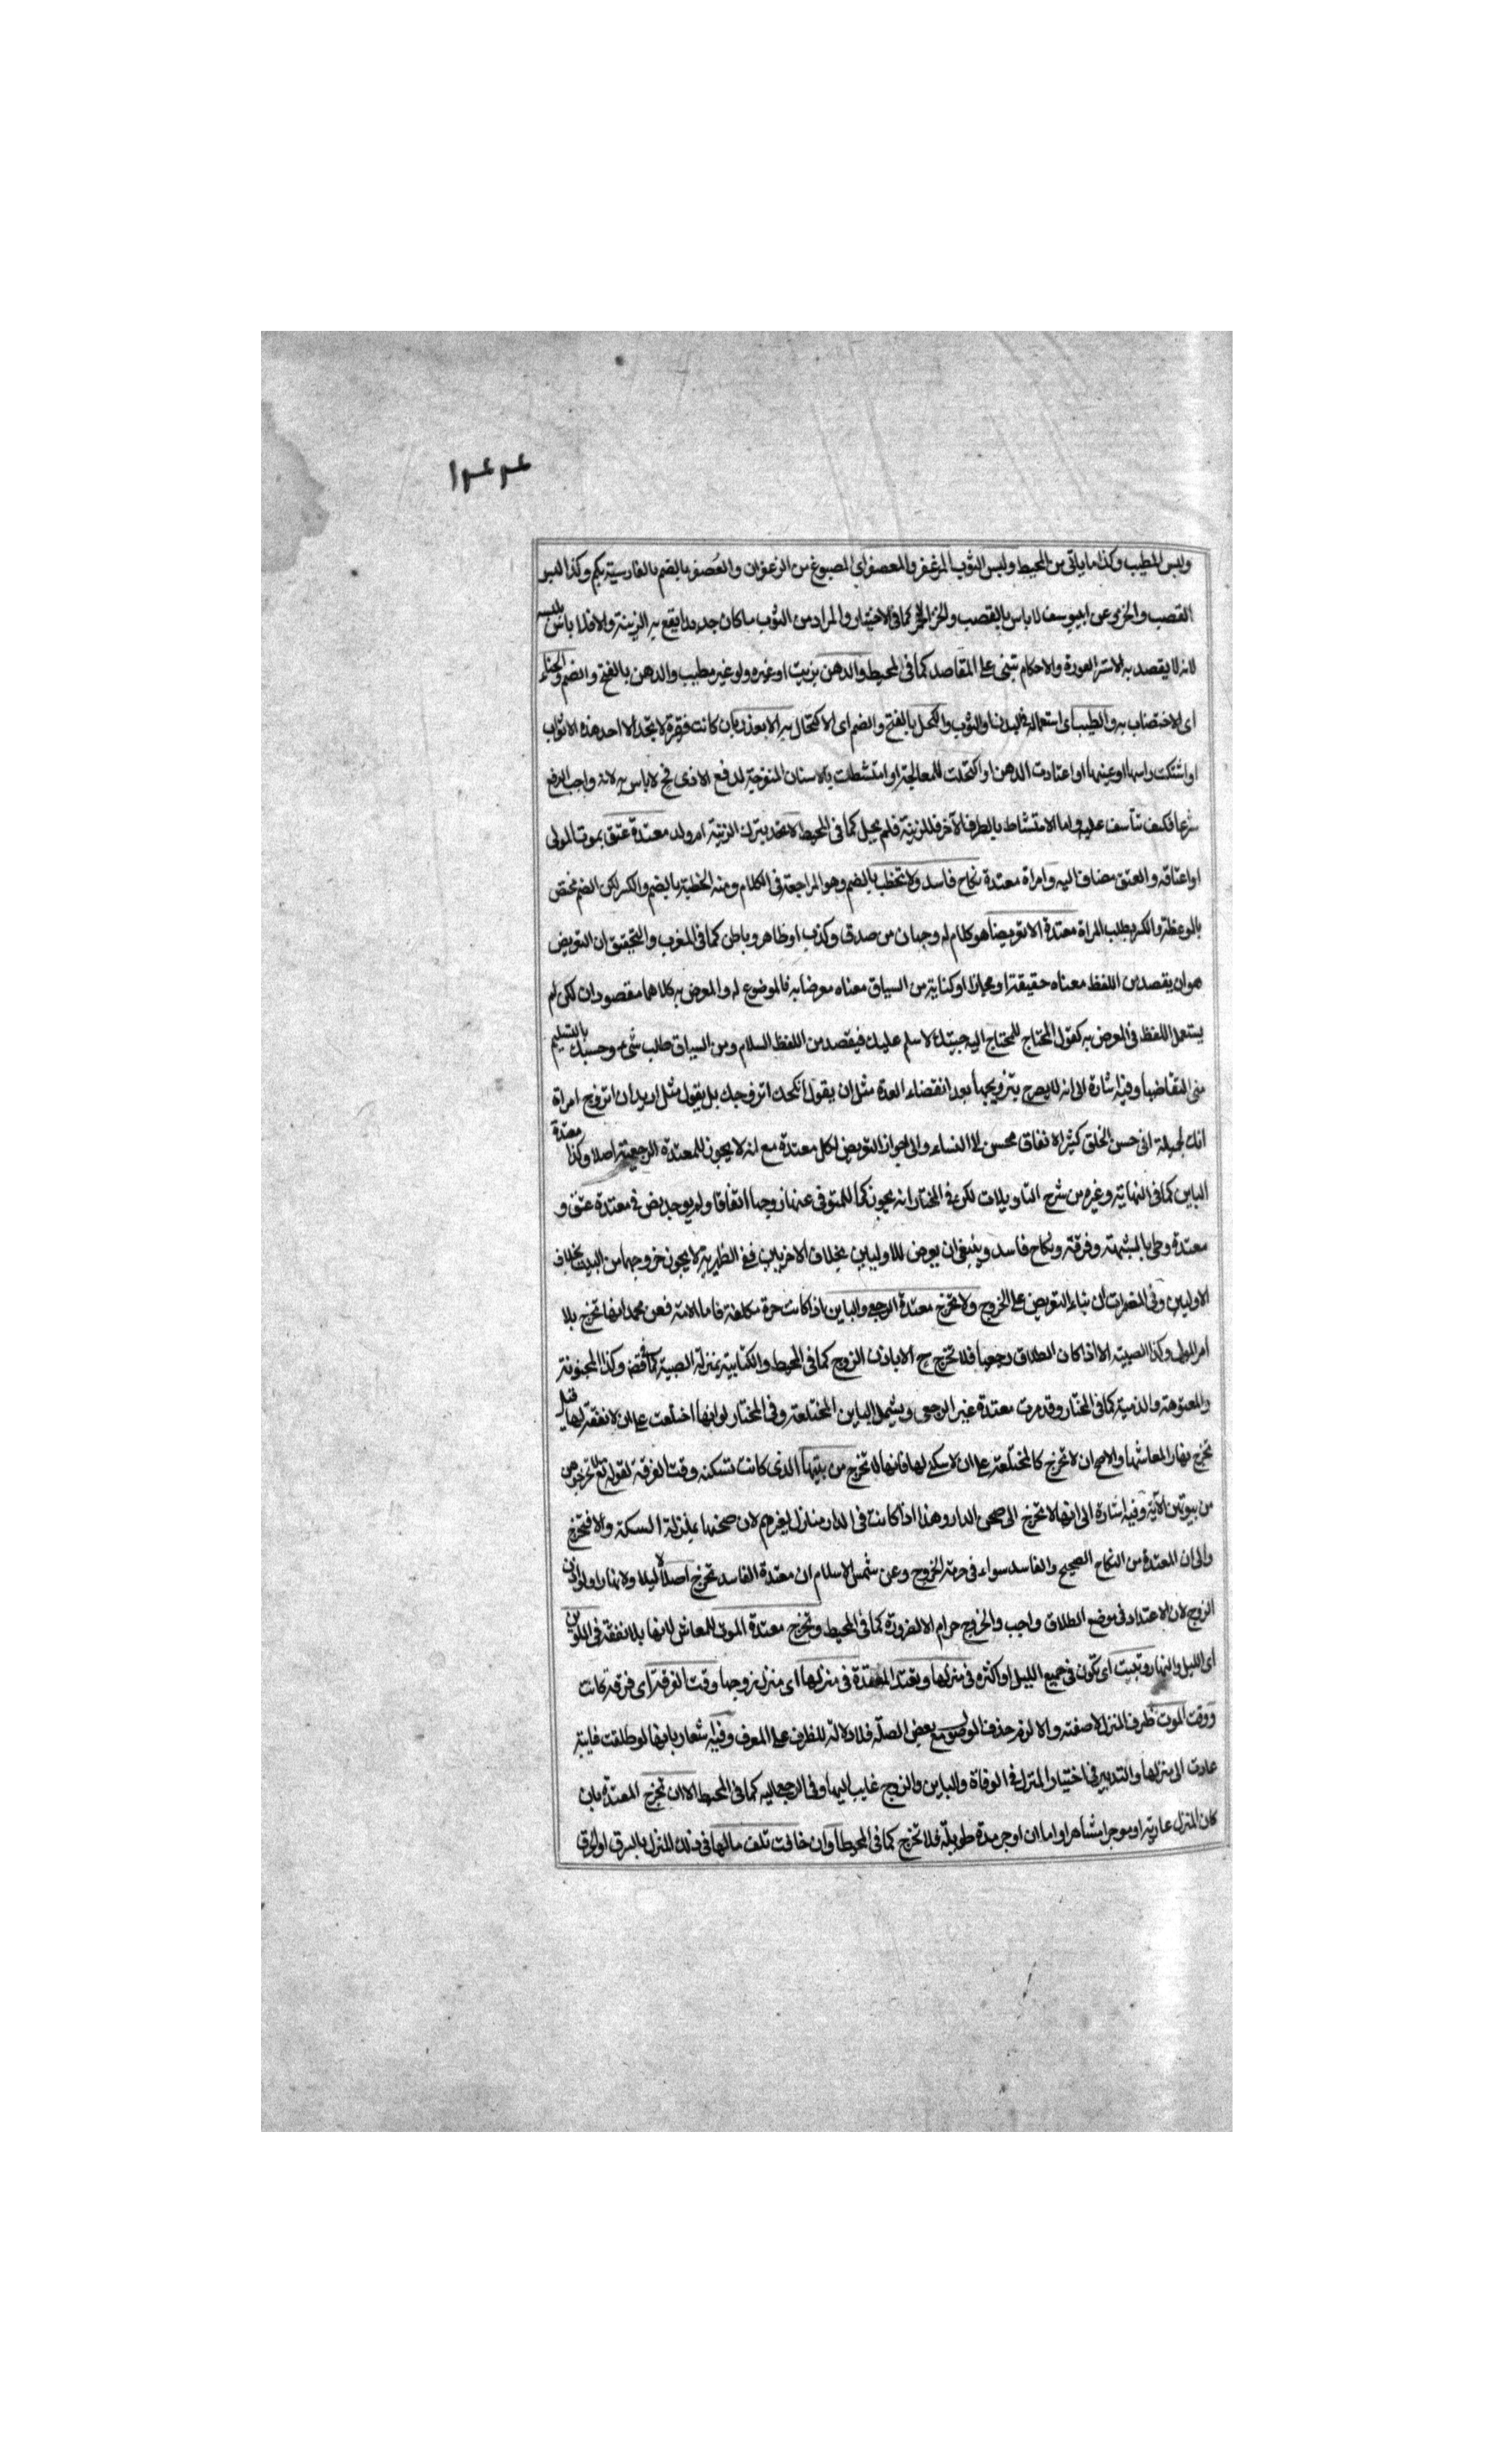 ١٤٤
ولبس المطيب وكذا ما ياتى من المحيط ولبس الثوب المزعفر والمعصفر اى المصبوغ من الزعفران والعصفر بالضم بالفارسية بكم وكذا لبس
القصب والخز وعن ابيوسف لا باس بالقصب والخز الاحمر كما فى الاختيار والمراد من الثوب ما كان جديدا يقع به الزينة والا فلا باس بلبسه
لانه لا يقصد به الا ستر العورة والاحكام تبنى على المقاصد كما فى المحيط والدهن بزيت او غيره ولو غير مطيب والدهن بالفتح والضم والحناء
اى الاختضاب به والطيب اى استعماله فى البدن او الثوب والكحل بالفتح والضم اى الاكتحال به الا بعذر بان كانت فقيرة لا تجد الا احد هذه الاثواب
او اشتكت راسها او عينها او اعتادت الدهن او اكتحلت للمعالجة او امتشطت بالاسنان المنفرجة لدفع الاذى فح لا باس به لانه واجب الدفع
شرعا فكيف تتأسف عليه واما الامتشاط بالطرف الآخر فللزينة فلم يحل كما فى المحيط لا تحد بترك الزينة ام ولد معتدة عتق بموت المولى
او اعتاقه والعتق مضاف اليه وامراة معتدة نكاح فاسد ولا تخطب بالضم وهو المراجعة فى الكلام ومنه الخطبة بالضم والكسر لكن الضم مختص
بالموعظة والكسر بطلب المراة معتدة الا تعريضا هو كلام له وجهان من صدق وكذب او ظاهر وباطن كما فى المغرب والتحقيق ان التعريض
هو ان يقصد من اللفظ معناه حقيقة او مجازا او كناية من السياق معناه معرضا به فالموضوع له والمعرض به كلاهما مقصودان لكن لم
يستعمل اللفظ فى المعرض به كقول المحتاج للمحتاج اليه جيتك لاسلم عليك فيقصد من اللفظ السلام ومن السياق طلب شئ وحسبك بالتسليم
منى التقاضيا وفيه اشارة الى انه لا يصرح بتزويجها بعد انقضاء العدة مثل ان يقول انكحك اتزوجك بل يقول مثل اريد ان اتزوج امراة
انك لجميلة انى حسن الخلق كثير الانفاق محسن الى النساء والى جواز التعريض لكل معتدة مع انه لا يجوز للمعتدة الرجعية اصلا وكذا معتدة
الباين كما فى النهاية وغيره من شرح التاويلات لكن فى المختار انه يجوز كما للمتوفى عنها زوجها اتفاقا ولم يوجد نص فى معتدة عتق و
معتدة وطى بالشبهة وفرقة ونكاح فاسد وينبغى ان يعرض للاوليين بخلاف الاخريين ففى الظهيرية لا يجوز خروجهما من البيت بخلاف
الاوليين وفى المضمرات ان بناء التعريض على الخروج ولا تخرج معتدة الرجعى والباين اذا كانت حرة مكلفة فاما الامة فعن محمد انها تخرج بلا
امر المولى وكذا الصبية الا اذا كان الطلاق رجعيا فلا تخرج ح الا باذن الزوج كما فى المحيط والكتابية بمنزلة الصبية كما فى وكذا المجنونة
والمعتوهة والذمية كما فى المختار وقد مرت معتدة غير الرجعى ويشمل الباين المختلعة وفى المختار لو انها اختلعت على ان لا نفقة لها قيل
تخرج نهارا لمعاشها والاصح ان لا تخرج كالمختلعة على ان لا سكنى لها فانها لا تخرج من بيتها الذى كانت تسكنه وقت الفرقة لقوله تع لا تخرجوهن
من بيوتهن الآية وفيه اشارة الى انها لا تخرج الى صحن الدار وهذا اذا كانت فى الدار منازل لغيرهم لان صحنها بمنزلة السكة والا فتخرج
والى ان المعتدة من النكاح الصحيح والفاسد سواء فى حرمة الخروج وعن شمس الاسلام ان معتدة الفاسد لا تخرج اصلا ليلا ولا نهارا ولو اذن
الزوج لان الاعتداد فى موضع الطلاق واجب والخروج حرام الا لضرورة كما فى المحيط وتخرج معتدة الموت للمعاش لانها بلا نفقة فى الملوين
اى الليل والنهار وتبيت اى تكون فى جميع الليل او اكثره فى منزلها وتعتد المعتدة فى منزلها اى منزل زوجها وقت الفرقة اى فرقة كانت
ووقت الموت ظرف المنزل لا صفته والا لزم حذف الموصول مع بعض الصلة فلا دلالة للظرف على المعرف وفيه اشعار بانها لو طلقت غايبة
عادت الى منزلها والتدبير فى اختيار المنزل فى الوفاة والباين والزوج غايب اليها وفى الرجعى اليه كما فى المحيط الا ان تخرج المعتدة بان
كان المنزل عارية او موجرا مشاهرا واما ان اوجر مدة طويلة فلا تخرج كما فى المحيط او ان خافت تلف مالها فى ذلك المنزل بالسرق او الحرق